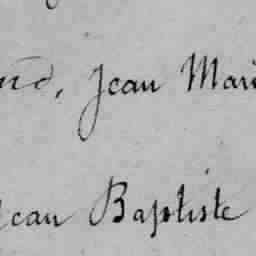 Jean Mari
Jean Baptiste